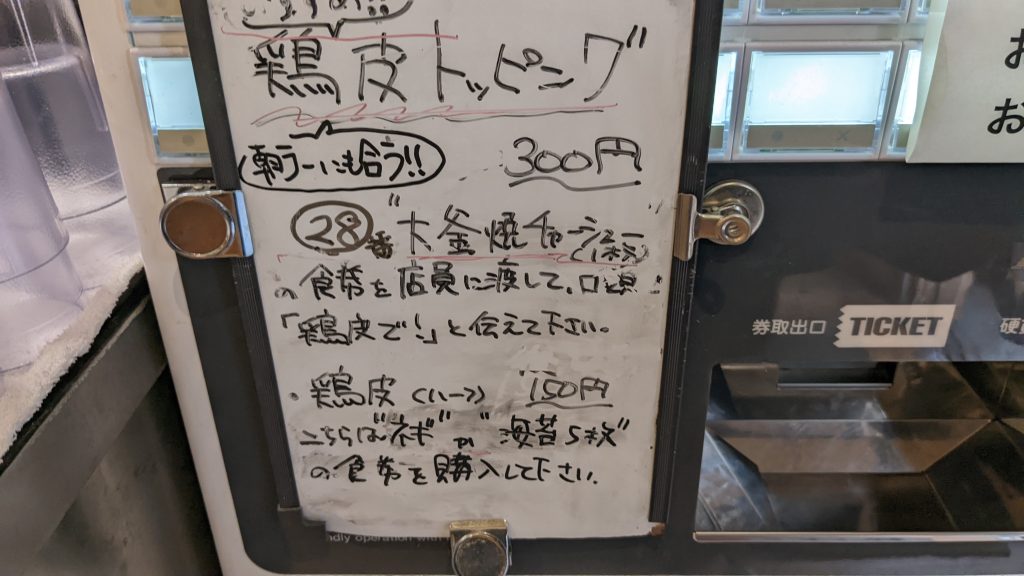 すすめ!!
鶏皮トッピング
朝ラーにも合う!!
300円
28番 "大釜焼チャーシュー
(1枚)"
の食券を店員に渡して、口頭
「鶏皮で!」と伝えて下さい。
・鶏皮〈ハーフ〉 150円
こちらは"ネギ"か"海苔5枚"
の食券を購入して下さい。
ndly operation with
券取出口 TICKET
硬
お
お